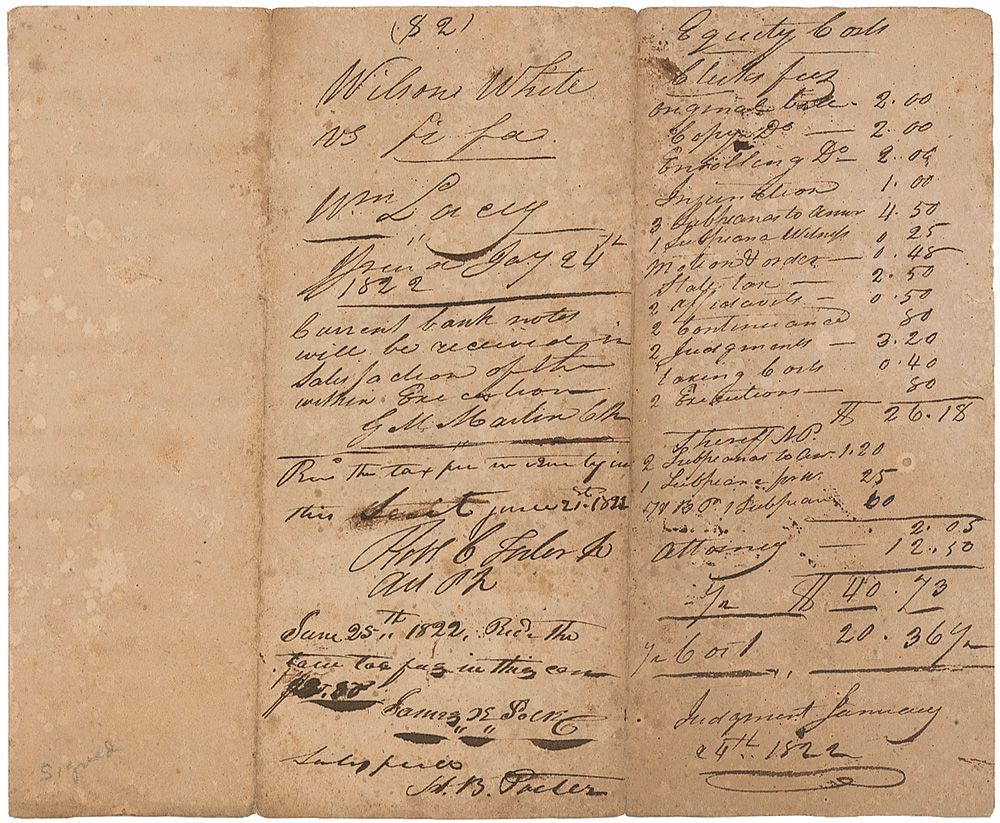 Signed
(82)
Wilson White
vs fi fa
Wm Lacey
24th
1822
Current bank notes
will be received in
Satisfaction of the
within Execution
G M Martin Clk
Recd the tax fee in
this suit June 21st 1822
June 25th 1822, Recd the
law tax fee in this
James K Polk
H. B. Porter
Equity Costs
Clerks fees
original - 2.00
Copy Do — 2.00
Enrolling Do — 2.00
Injunction 1.00
3 Subpeanas to Answr 4.50
1 Subpeana Witness 0 25
Motion & order — 0.45
State tax — 2.50
2 affidavits — 0.50
2 Continuance 80
2 Judgments — 3.20
Taxing Costs 0.40
2 Executions — 80
$ 26.18
Sheriff
2 Subpeanas to An. 1.20
1 Subpeana 25
1 Subpeana 60
2.05
Attorney — 12.50
1/2 $ 40.73
1/2 Cost 20.36 1/2
Judgment January
24th 1822